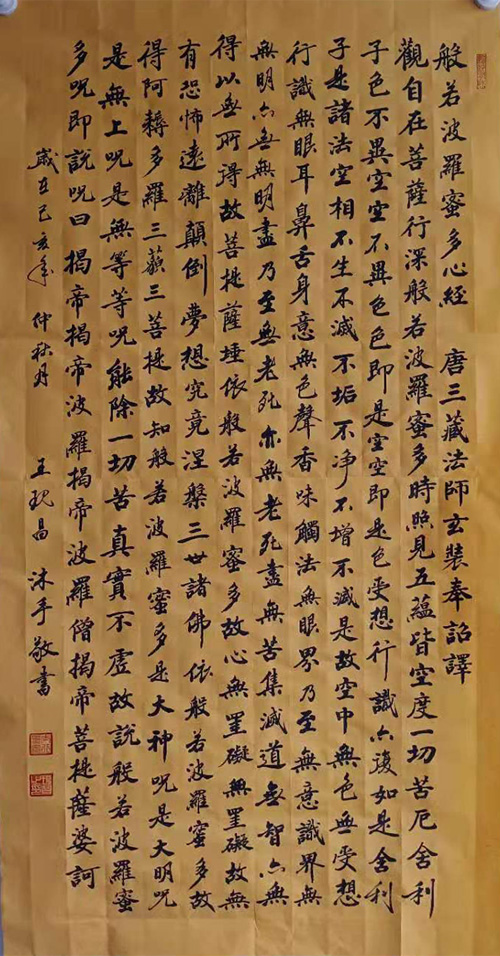 般若波羅蜜多心經 唐三藏法師玄奘奉詔譯
觀自在菩薩行深般若波羅蜜多時照見五蘊皆空度一切苦厄舍利
子色不異空空不異色色即是空空即是色受想行識亦復如是舍利
子是諸法空相不生不滅不垢不净不增不減是故空中無色無受想
行識無眼耳鼻舌身意無色聲香味觸法無眼界乃至無意識界無
無明亦無無明盡乃至無老死亦無老死盡無苦集滅道無智亦無
得以無所得故菩提薩埵依般若波羅蜜多故心無罣礙無罣礙故無
有恐怖遠離顛倒夢想究竟涅槃三世諸佛依般若波羅蜜多故
得阿耨多羅三藐三菩提故知般若波羅蜜多是大神呪是大明呪
是無上呪是無等等呪能除一切苦真實不虛故說般若波羅蜜
多呪即說呪曰揭帝揭帝波羅揭帝波羅僧揭帝菩提薩婆訶
歲在己亥年仲秋月 王 昌沐手敬書